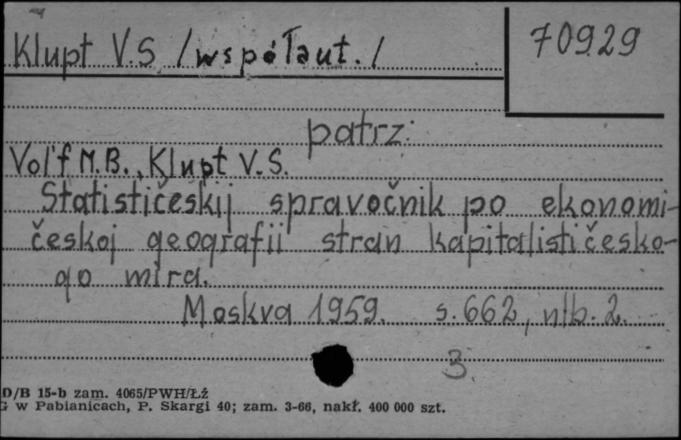 Klupt V.S. /współaut./
70929
patrz:
Vol'f M.B., Klupt V.S.
Statističeskij spravočnik po ekonomi-
českoj geografii stran kapitalističesko-
go mira.
Moskva 1959. s. 662, nlb. 2.
3.
D/B 15-b zam. 4065/PWH/Łź
G w Pabianicach, P. Skargi 40; zam. 3-66, nakł. 400 000 szt.